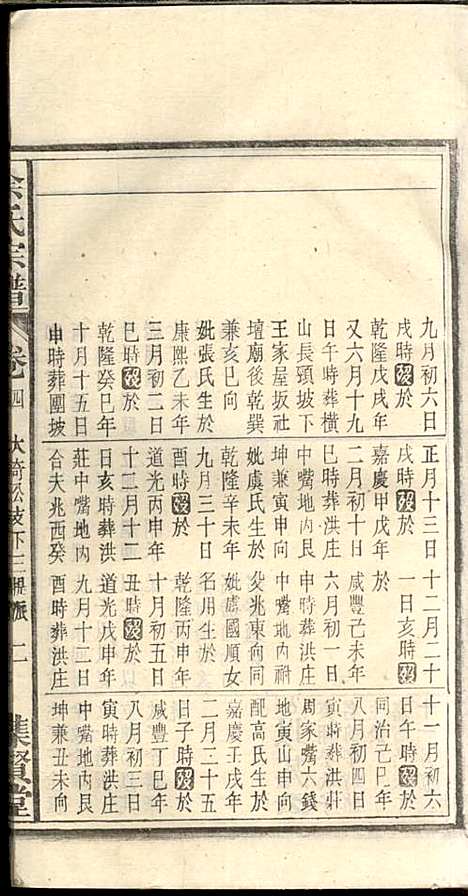 九月初六日
戌時歿於
乾隆戊戌年
又六月十九
日午時葬橫
山長頸坡下
王家屋坂社
壇廟後乾巽
兼亥巳向
妣張氏生於
康熙乙未年
三月初二日
巳時歿於
乾隆癸巳年
十月十五日
申時葬團坡
正月十三日
戌時歿於
嘉慶甲戊年
二月初十日
巳時葬洪庄
中嘴地內艮
坤兼寅申向
妣虞氏生於
乾隆辛未年
九月三十日
酉時歿於
道光丙申年
十二月十二
日亥時葬洪
莊中嘴地內
合夫兆酉癸
十二月二十
一日亥時歿
於
咸豐己未年
六月初一日
申時葬洪庄
中嘴地內祔
父兆東向同
妣應國順女
名用生於
乾隆丙申年
十月初五日
丑時歿於
道光戊申年
九月十二日
酉時葬洪庄
十一月初六
日午時歿於
同治己巳年
八月初四日
寅時葬洪莊
周家嘴六錢
地寅山申向
配高氏生於
嘉慶壬戌年
二月二十五
日子時歿於
咸豐丁巳年
八月初三日
寅時葬洪庄
中嘴地內艮
坤兼丑未向
余氏宗譜
卷四 大埼松枝下三 派 二
集賢堂